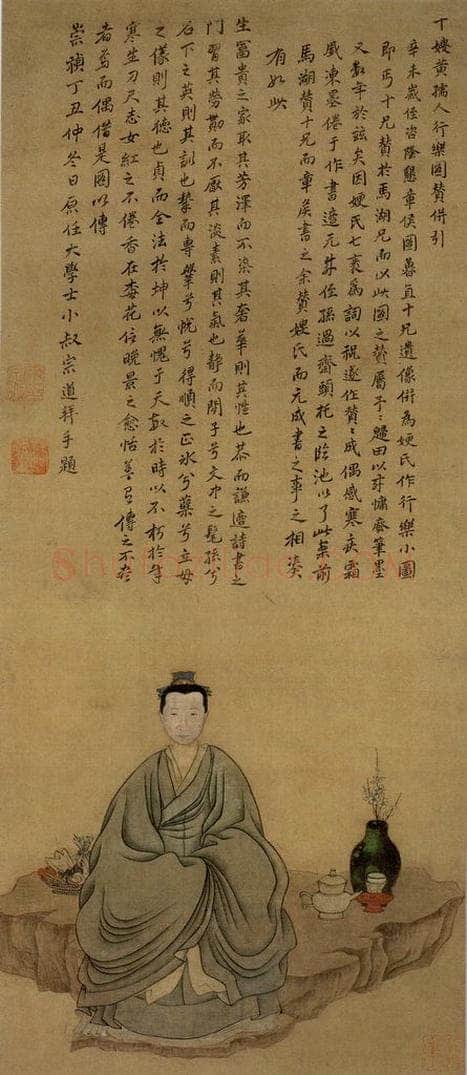 十嫂黄孺人行樂圖贊併引
辛未歲侄咨隆懇章侯圖暮直十兄遺像併為嫂氏作行樂小圖
即丐十兄贊於馬湖兄而以此圖之贊屬予予歸田以來慵廢筆墨
又數年於兹矣因嫂氏七袠為詞以祝遂作贊贊成偶感寒疾霜
威凍墨倦于作書適元
臨池以了此案前
馬湖贊十兄而章侯書之余贊嫂氏而元成書之事之相湊
有如此
生富貴之家取其芳澤而不染其奢華則其性也恭而謙適詩書之
門習其勞勩而不厭其淡素則其氣也静而閒子兮文冲之髦孫兮
石下之英則其訓也摯而專鬢兮
兮得順之正氷兮蘗兮立母
之儀則其德也貞而全法於坤以無愧于天
於時以不朽於年
寒生刀尺志女紅之不倦香在梅花住晚景之愈恬善
傳之不盡
者焉而偶借是圖以傳
崇禎丁丑仲冬日原任大學士小叔宗道拜手題